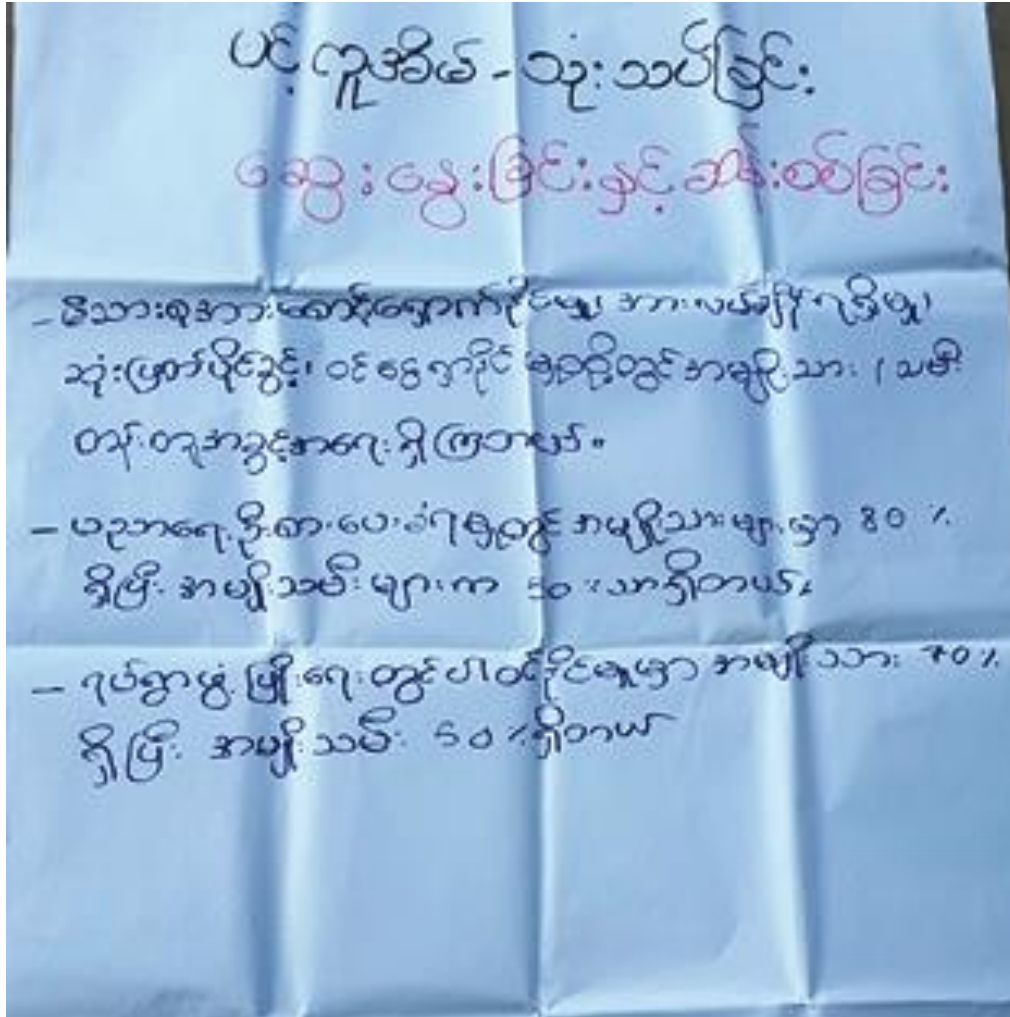 ပင့်ကူအိမ် - သုံးသပ်ခြင်း
ဆွေးနွေးခြင်းနှင့် ဆန်းစစ်ခြင်း
- မိသားစုအား စောင့်ရှောက်နိုင်မှု၊ အားလပ်ချိန်ရရှိမှု၊
ဆုံးဖြတ်ပိုင်ခွင့်၊ ဝင်ငွေရှာနိုင်မှုတို့တွင် အမျိုးသား / သမီး
တန်းတူအခွင့်အရေး ရှိကြတယ်။
- ပညာရေး ဦးစားပေးခံရမှုတွင် အမျိုးသားများမှာ 80 %
ရှိပြီး အမျိုးသမီးများက 50 % သာရှိတယ်။
- ရပ်ရွာဖွံ့ဖြိုးရေးတွင် ပါဝင်နိုင်မှုမှာ အမျိုးသား 70 %
ရှိပြီး အမျိုးသမီး 50 % ရှိတယ်